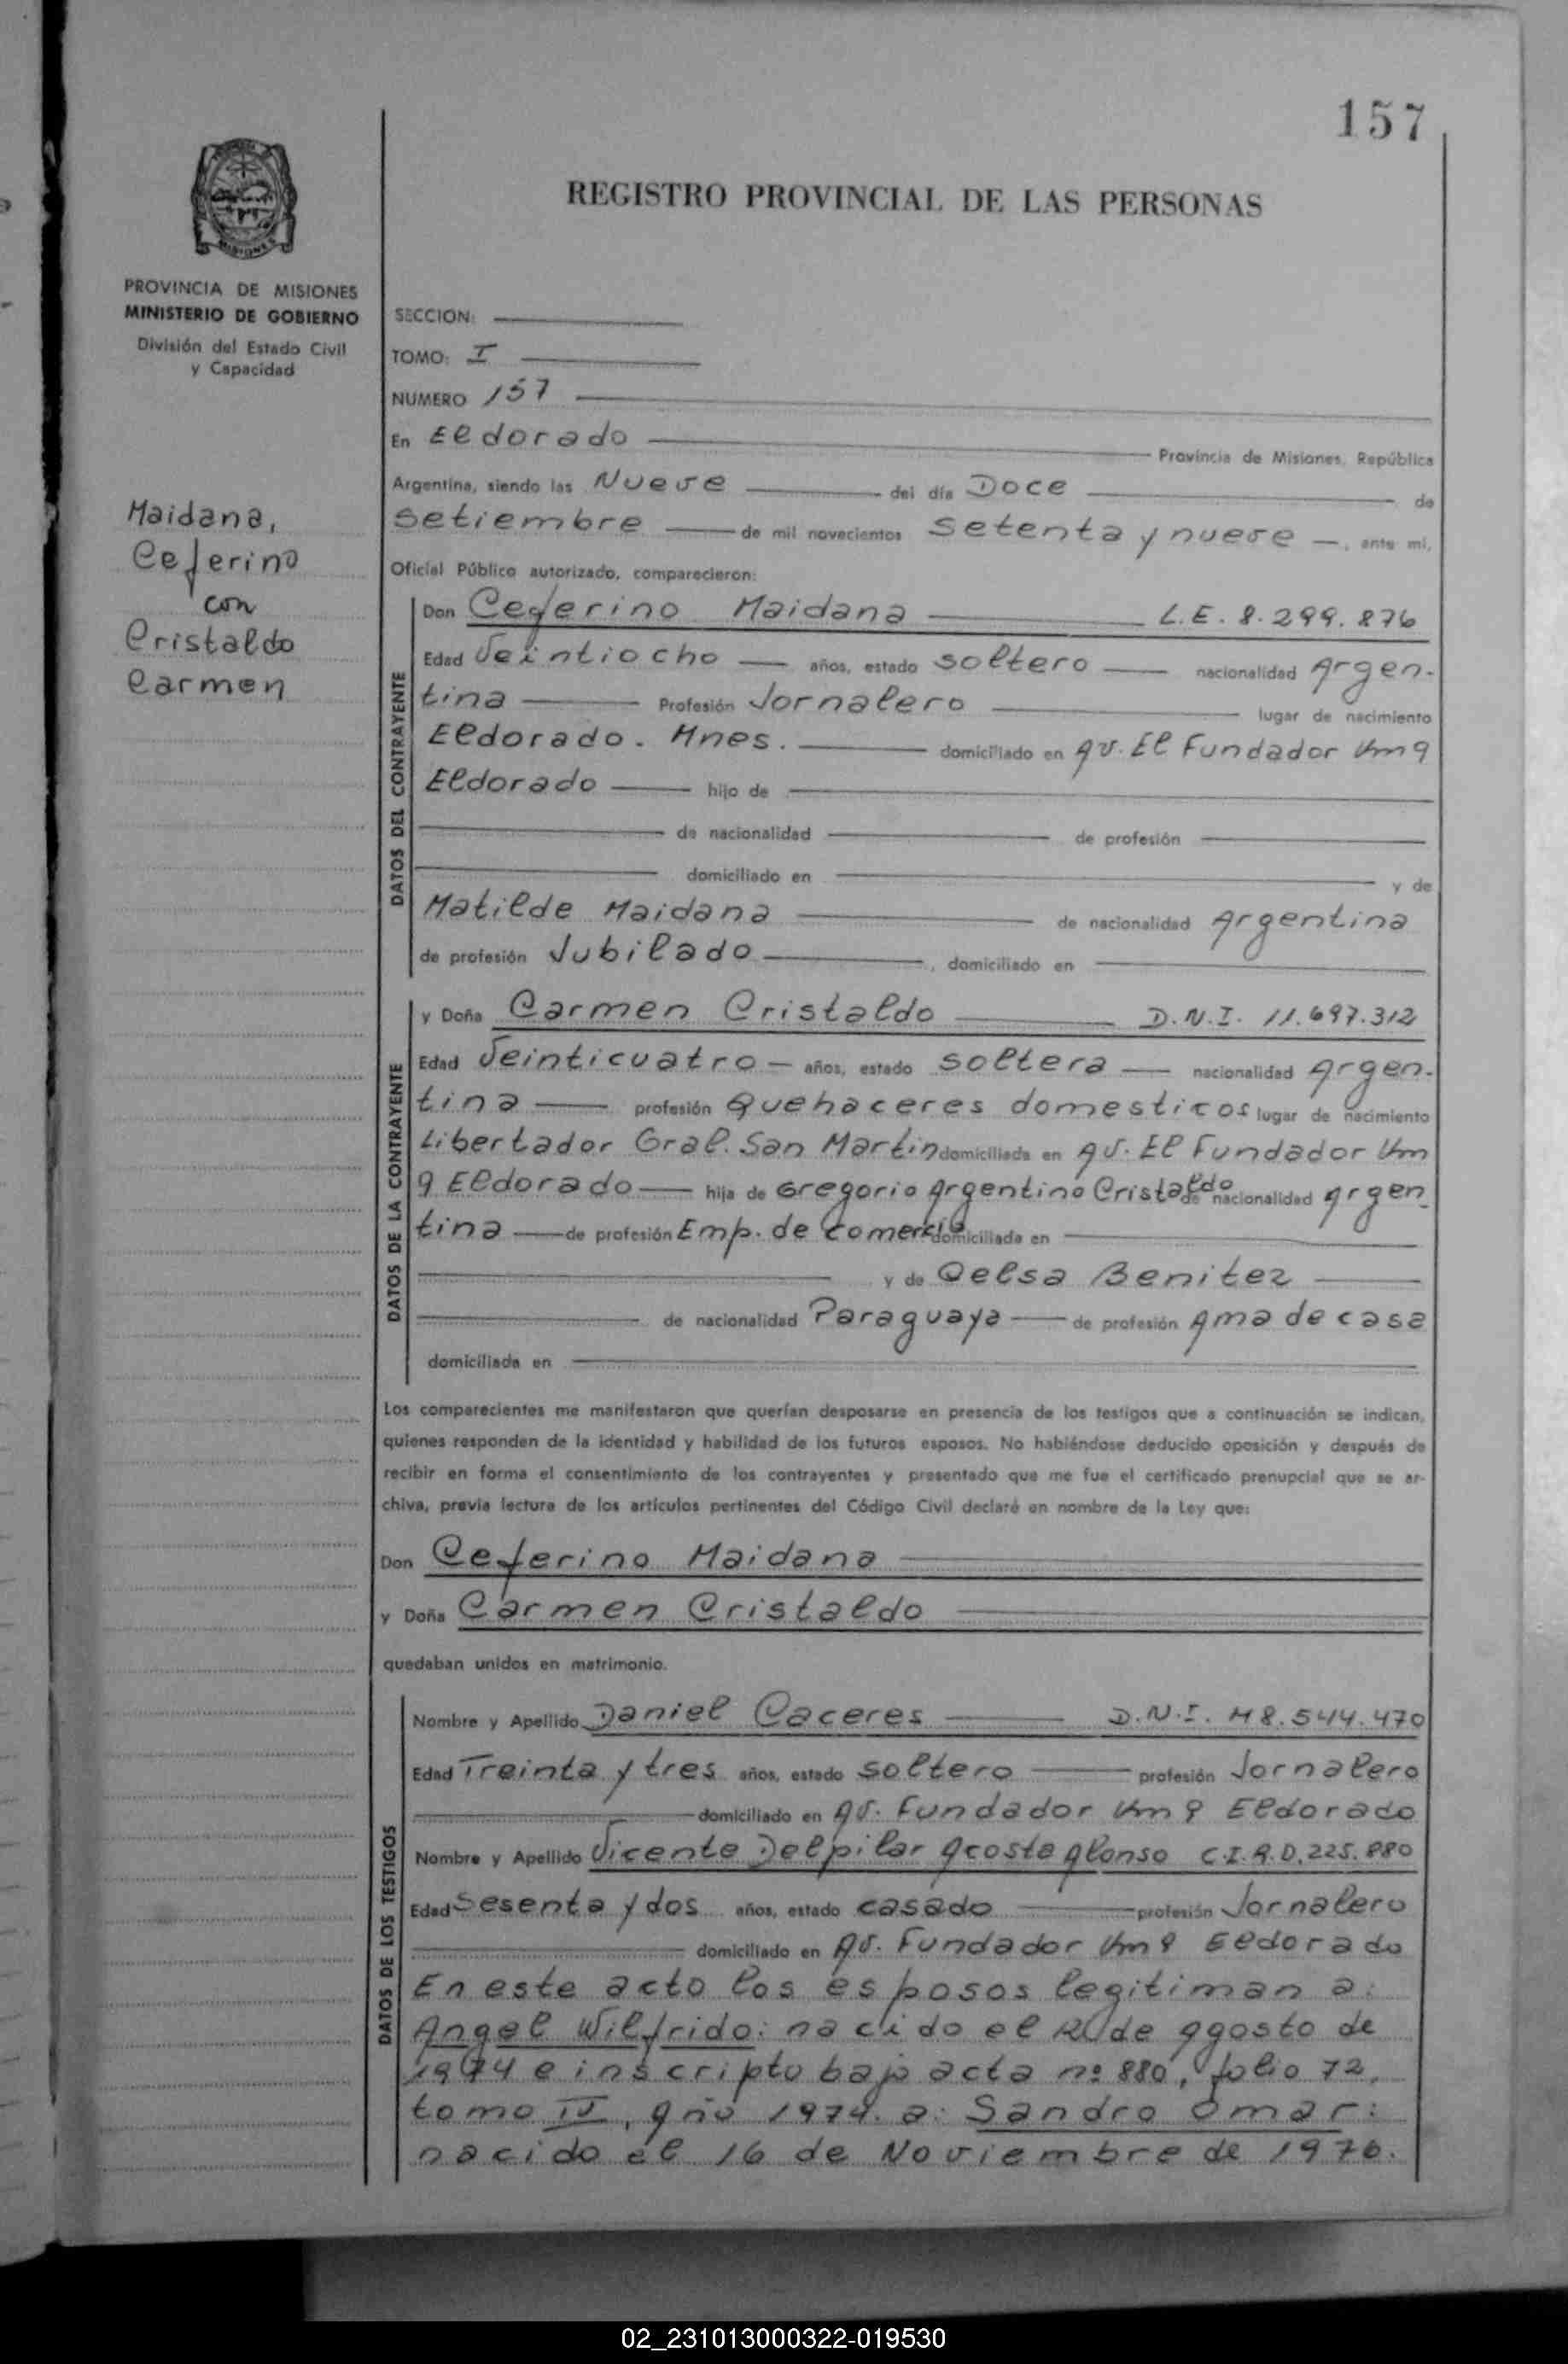 157
REGISTRO PROVINCIAL DE LAS PERSONAS
MISIONES
PROVINCIA DE MISIONES
MINISTERIO DE GOBIERNO
División del Estado Civil
y Capacidad
Maidana,
Ceferino
con
Cristaldo
Carmen
SECCION:
TOMO: I
NUMERO 157
En Eldorado Provincia de Misiones, República
Argentina, siendo las Nueve del día Doce de
Setiembre de mil novecientos Setenta y nueve, ante mí,
Oficial Público autorizado, comparecieron:
DATOS DEL CONTRAYENTE
Don Ceferino Maidana L.E. 8.299.876
Edad Veintiocho años, estado soltero nacionalidad Argen-
tina Profesión Jornalero lugar de nacimiento
Eldorado. Mnes. domiciliado en Av. El Fundador Km 9
Eldorado hijo de
de nacionalidad de profesión
domiciliado en y de
Matilde Maidana de nacionalidad Argentina
de profesión Jubilado, domiciliado en
DATOS DE LA CONTRAYENTE
y Doña Carmen Cristaldo D.N.I. 11.697.312
Edad Veinticuatro años, estado soltera nacionalidad Argen-
tina profesión Quehaceres domesticos lugar de nacimiento
Libertador Gral. San Martin domiciliada en Av. El Fundador Km
9 Eldorado hija de Gregorio Argentino Cristaldo de nacionalidad Argen-
tina de profesión Emp. de comercio domiciliada en
y de Celsa Benitez
de nacionalidad Paraguaya de profesión Ama de casa
domiciliada en
Los comparecientes me manifestaron que querían desposarse en presencia de los testigos que a continuación se indican,
quienes responden de la identidad y habilidad de los futuros esposos. No habiéndose deducido oposición y después de
recibir en forma el consentimiento de los contrayentes y presentado que me fue el certificado prenupcial que se ar-
chiva, previa lectura de los artículos pertinentes del Código Civil declaré en nombre de la Ley que:
Don Ceferino Maidana
y Doña Carmen Cristaldo
quedaban unidos en matrimonio.
DATOS DE LOS TESTIGOS
Nombre y Apellido Daniel Caceres D.N.I. M8.544.470
Edad Treinta y tres años, estado soltero profesión Jornalero
domiciliado en Av. Fundador Km 9 Eldorado
Nombre y Apellido Vicente Delpilar Acosta Alonso C.I.R.D. 225.880
Edad Sesenta y dos años, estado casado profesión Jornalero
domiciliado en Av. Fundador Km 9 Eldorado
En este acto los esposos legitiman a:
Angel Wilfrido: nacido el de Agosto de
1974 e inscripto bajo acta nº 880, folio 72,
tomo IV, año 1974. a: Sandro Omar:
nacido el 16 de Noviembre de 1976.
02_231013000322-019530